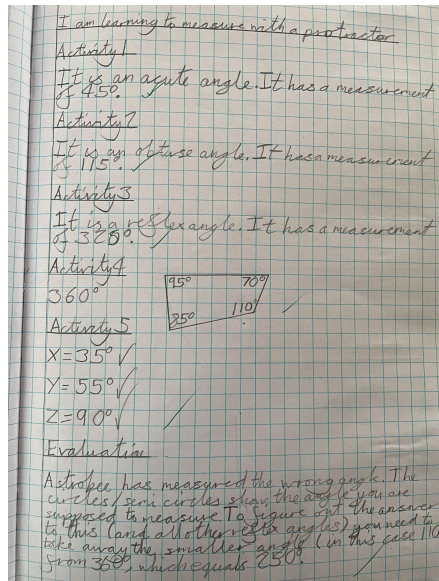 I am learning to measure with a protractor
Activity 1
It is an acute angle. It has a measurement
of 45°.
Activity 2
It is an obtuse angle. It has a measurement
of 115°.
Activity 3
It is a reflex angle. It has a measurement
of 320°.
Activity 4
360°
95° 70°
85° 110°
Activity 5
X=35°
Y=55°
Z=90°
Evaluation
Astrobee has measured the wrong angle. The
circles/semi circles show the angle you are
supposed to measure. To figure out the answer
to this (and all other reflex angles) you need to
take away the smaller angle (in this case 110
from 360°, which equals 250°.